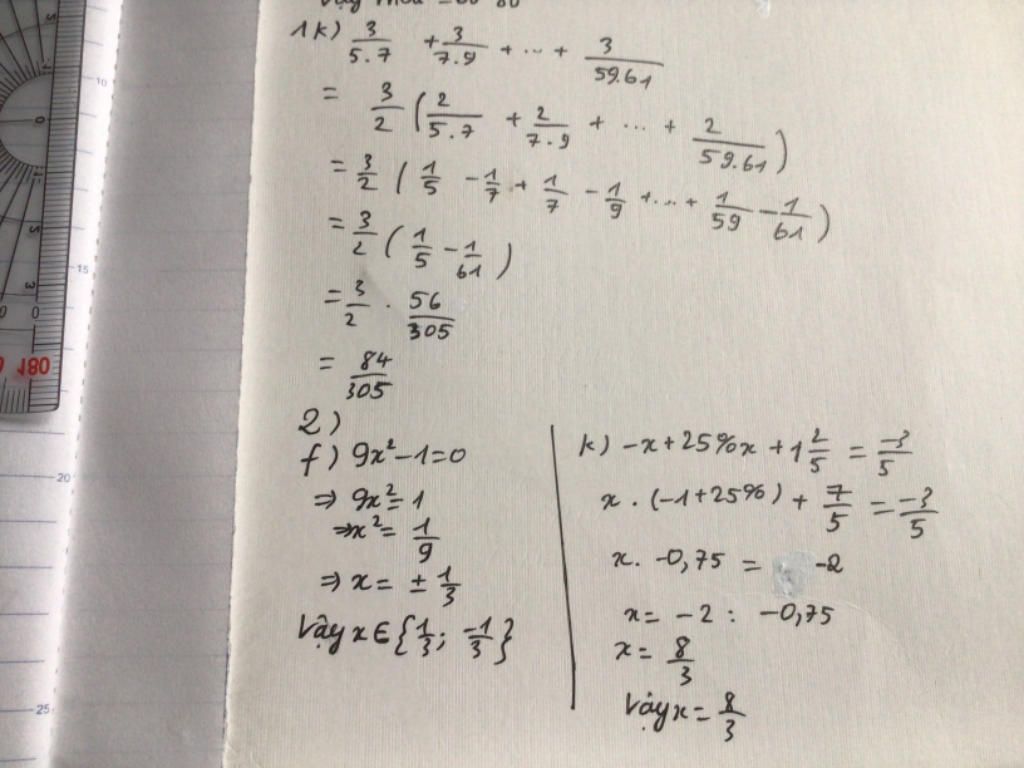 1k) 3/5.7 + 3/7.9 + ... + 3/59.61
= 3/2 ( 2/5.7 + 2/7.9 + ... + 2/59.61 )
= 3/2 ( 1/5 - 1/7 + 1/7 - 1/9 + ... + 1/59 - 1/61 )
= 3/2 ( 1/5 - 1/61 )
= 3/2 . 56/305
= 84/305
2)
f) 9x² - 1 = 0
⇒ 9x² = 1
⇒ x² = 1/9
⇒ x = ± 1/3
Vậy x ∈ { 1/3 ; -1/3 }
k) -x + 25%x + 1 2/5 = -3/5
x . (-1 + 25%) + 7/5 = -3/5
x . -0,75 = -2
x = -2 : -0,75
x = 8/3
Vậy x = 8/3
10
15
20
25
0 180